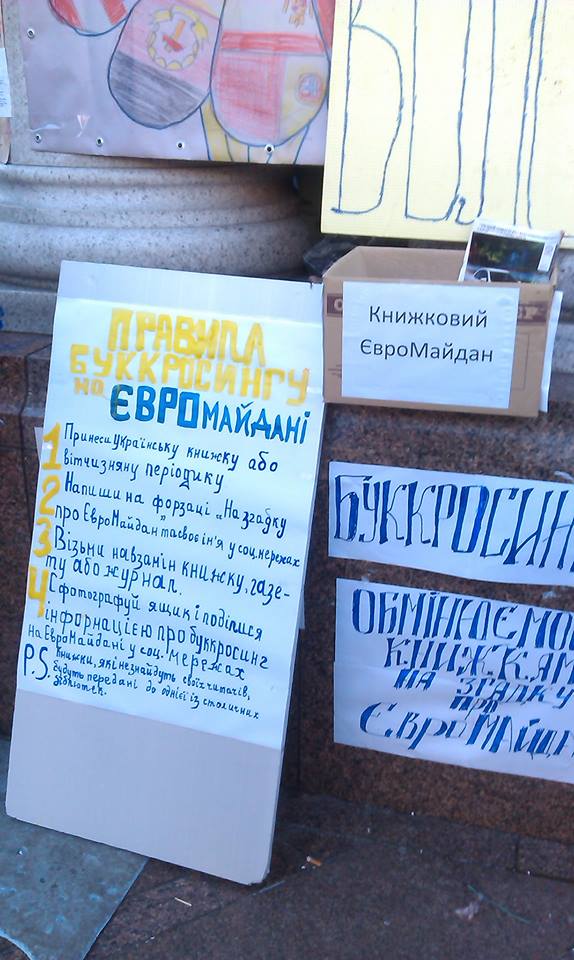 Книжковий
ЄвроМайдан
ПРАВИЛА
БУККРОСИНГУ
НА ЄВРОМАЙДАНІ
1 Принеси Українську книжку або
вітчизняну періодику
2 Напиши на форзаці „На згадку
про ЄвроМайдан" та своє ім'я у соц. мережах
3 Візьми навзамін книжку, газе-
ту або журнал.
4 Сфотографуй ящик і поділися
інформацією про буккросинг
на ЄвроМайдані у соц. мережах
P.S. Книжки, які не знайдуть своїх читачів,
будуть передані до однієї із столичних
бібліотек.
БУККРОСИН
ОБМІНЮЄМО
КНИЖКАМ
НА ЗГАДКУ
ПРО
ЄВРОМАЙДА